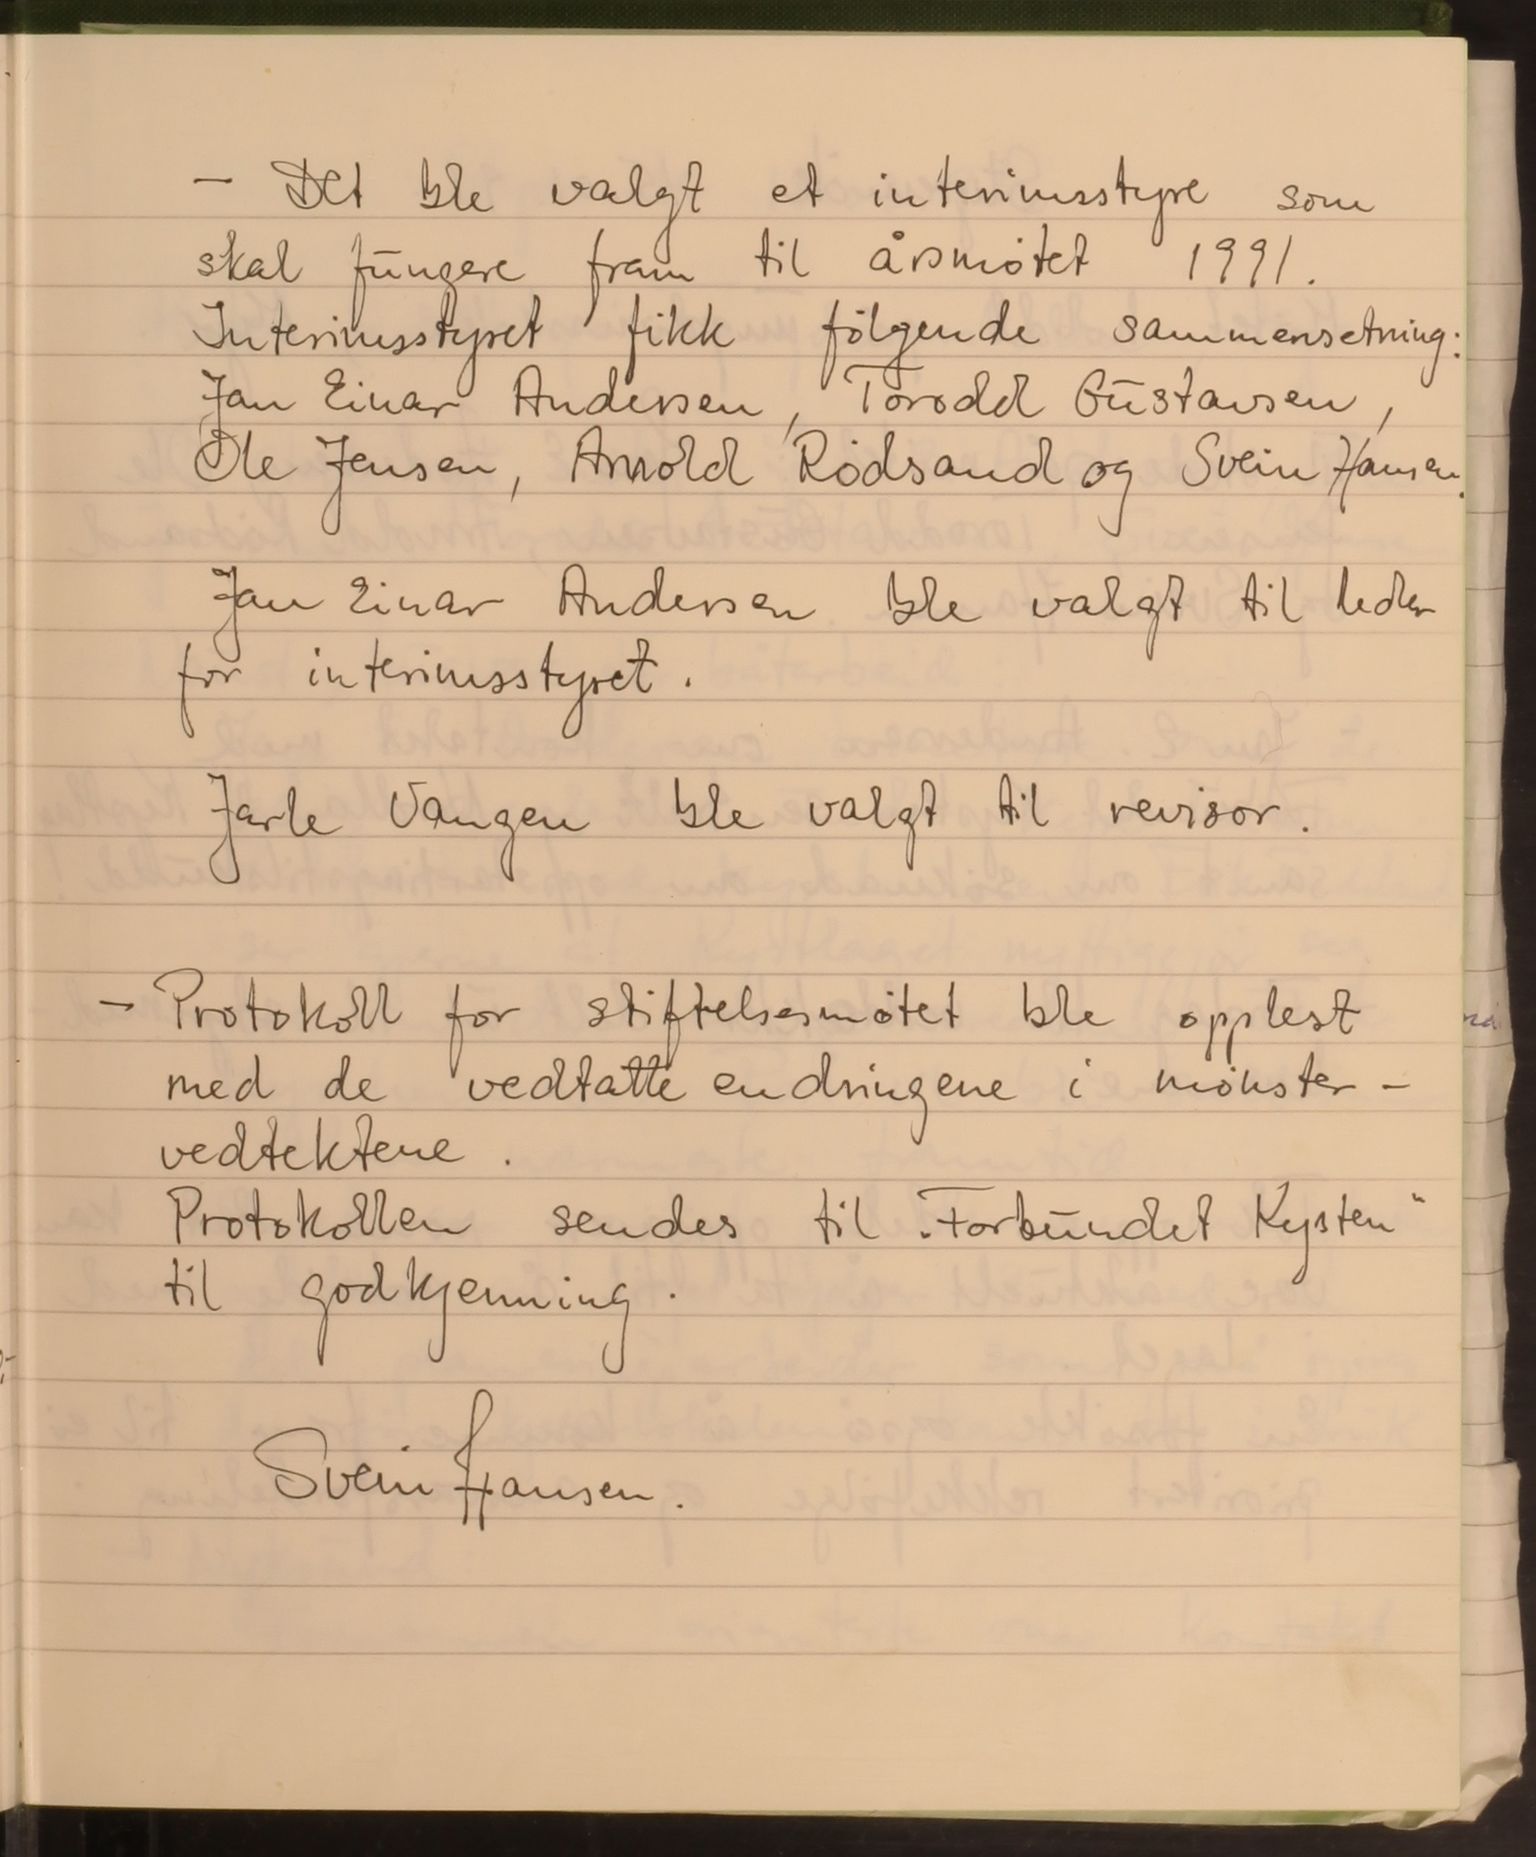 - Det ble valgt et interimsstyre som
skal fungere fram til årsmøtet 1991.
Interimsstyret fikk følgende sammensetning:
Jan Einar Andersen, Torodd Gustavsen,
Ole Jensen, Arnold Rødsand og Svein Hansen.
Jan Einar Andersen ble valgt til leder
for interimsstyret.
Jarle Vangen ble valgt til revisor.
- Protokoll for stiftelsesmøtet ble opplest
med de vedtatte endringene i mønster-
vedtektene.
Protokollen sendes til "Forbundet Kysten"
til godkjenning.
Svein Hansen.